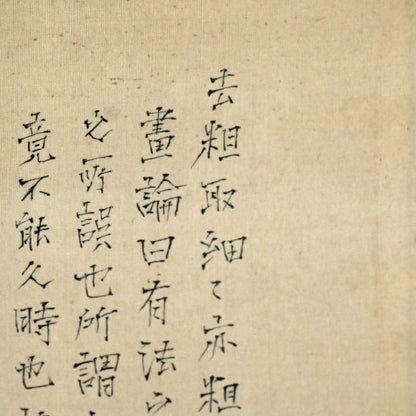 去粗取細〻亦粗
畫論曰有法
所誤也所謂
竟不能久時也